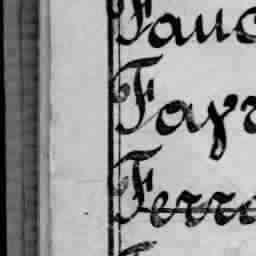 Fauc
Fayr
Ferre